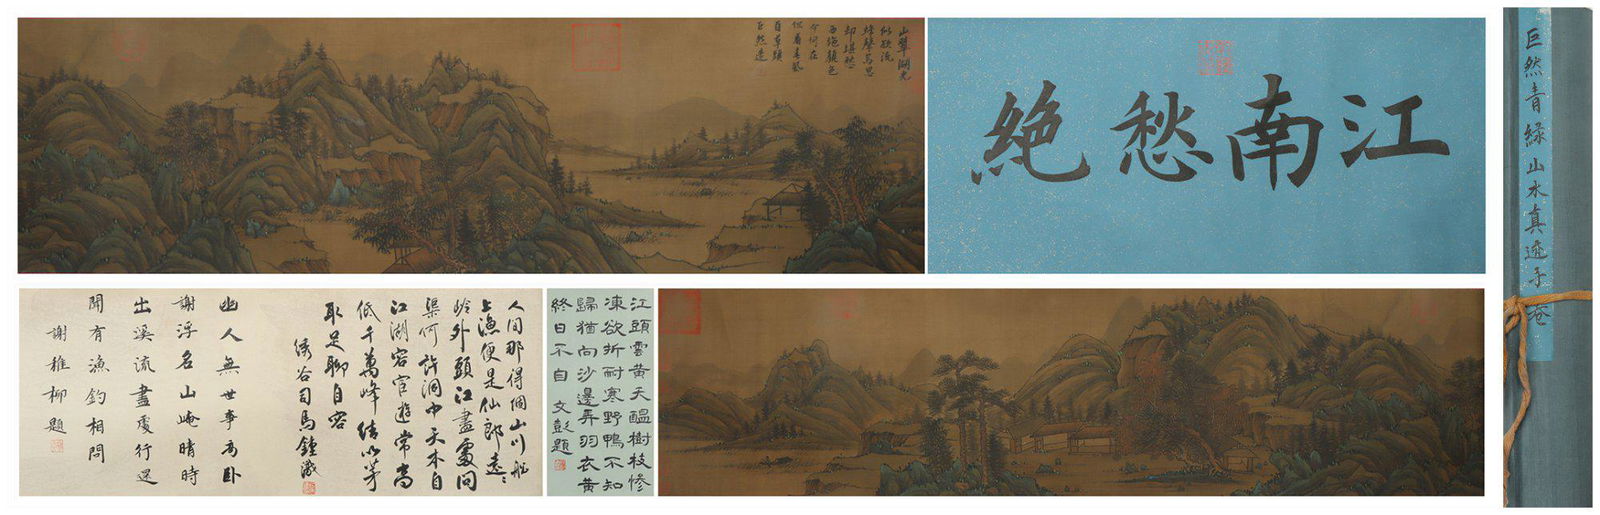 山翠湖光
似欲流
蜂聲鳥思
却堪愁
西施顏色
今何在
但看春風
百草頭
巨然造
江南愁絕
巨然青綠山水真迹子
人間那得個山川船
上漁便是仙郎遠〻
嶺外頭江盡處問
渠何許洞中天本自
江湖客宦遊常當
低千萬峰結以茅
取足聊自容
綉谷司馬鍾
幽人無世事高卧
謝浮名山崦晴時
出溪流盡處行還
聞有漁釣相問
謝稚柳題
江頭雲黃天醞樹枝慘
凍欲折耐寒野鴨不知
歸猶向沙邊弄羽衣黃
終日不自 文彭題